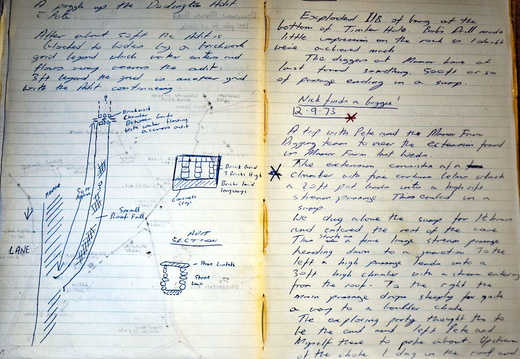 A prowl up the Dodington Adit
& Pete
After about 50ft the Adit is
blocked to hades by a brickwork
grid beyond which water enters and
flows away across the adit.
3ft beyond the grid is another grid
with the Adit continuing
Brickwork
Chamber
Between Grids
with water flowing
across adit
50ft
Small
Roof Fall
LANE
Brick Grid
3 Bricks High
Bricks laid
longways
Concrete
Slip
ADIT
SECTION
Stone Lintels
Stone
Walls
Exploded 1lb of bang at the
bottom of Timber Hole. Bob Bull made
little impression on the rock so I doubt
were achieved much
The diggers at Manor have at
last found something. 500ft or so
of passage ending in a sump.
Nick finds a biggie!
12-9-73
A trip with Pete and the Manor Farm
Digging team to view the extension found
in Manor Farm last Weds
The extension consists of a
chamber with fine curtains below which
a 20ft pot leads into a high rift
stream passage. This ended in a
sump.
We dug above the sump for 1½ hours
and entered the rest of the cave
This is a fine large stream passage
heading down to a junction. To the
left a high passage leads into a
30ft high chamber with a stream entering
from the roof. To the right the
main passage drops steeply for quite
a way to a boulder choke.
The exploring party thought this to
be the end and left Pete and
Myself there to poke about. Upstream
of the choke I dug in the roof and